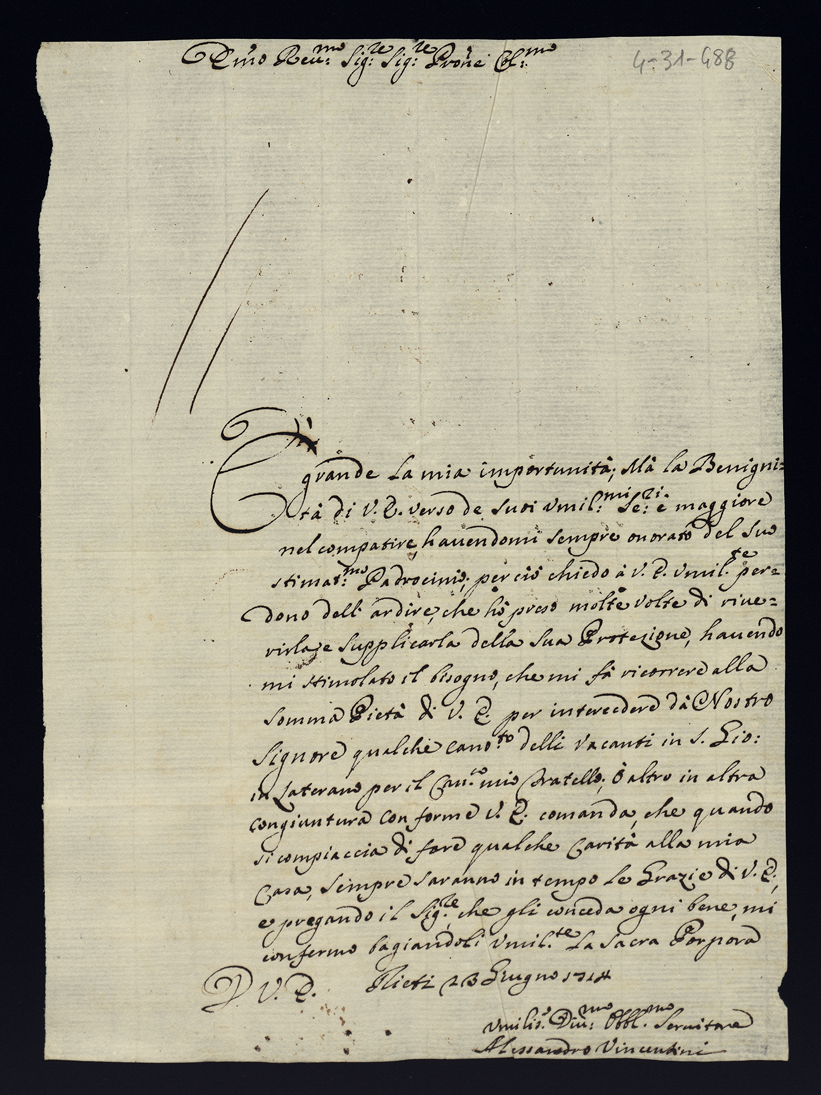 Em̃o Reu:mo Sig:re Sig:re Pron̄e Col:mo
4-31-488
È
grande la mia importunità; Mà la Benigni=
tà di V. E. verso de suoi vmil:mi Se:ri è maggiore
nel compatire, hauendomi sempre onorato del suo
stimat:mo Padrocinio; per ciò chiedo à V. E. vmil:te per=
dono dell'ardire, che hò preso molte volte di riue=
rirla, e supplicarla della sua Protezione, hauendo
mi stimolato il bisogno, che mi fà ricorrere alla
somma Pietà di V. E. per intercedere dà Nostro
Signore qualche Cano:to delli vacanti in S. Gio:
in Laterano per il Can:co mio Fratello; ò altro in altra
congiuntura conforme V. E. comanda, che quando
si compiaccia di fare qualche Carità alla mia
Casa, sempre saranno in tempo le Grazie di V. E.,
e pregando il Sig:re, che gli conceda ogni bene, mi
confermo bagiandoli vmil:te la Sacra Porpora
D V. E. Rieti 23 Giugno 1714
Vmilis:o Diu:mo Obbl:mo Seruitore
Alessandro Vincentini